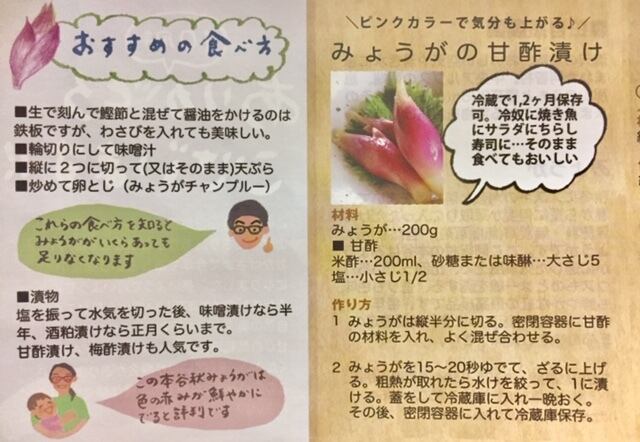 おすすめの食べ方
■生で刻んで鰹節と混ぜて醤油をかけるのは
鉄板ですが、わさびを入れても美味しい。
■輪切りにして味噌汁
■縦に2つに切って(又はそのまま)天ぷら
■炒めて卵とじ（みょうがチャンプルー）
これらの食べ方を知ると
みょうががいくらあっても
足りなくなります
■漬物
塩を振って水気を切った後、味噌漬けなら半
年、酒粕漬けなら正月くらいまで。
甘酢漬け、梅酢漬けも人気です。
この本谷秋みょうがは
色の赤みが鮮やかに
でると評判です
＼ピンクカラーで気分も上がる♪／
みょうがの甘酢漬け
冷蔵で1,2ヶ月保存
可。冷奴に焼き魚
にサラダにちらし
寿司に…そのまま
食べてもおいしい
材料
みょうが…200g
■ 甘酢
米酢…200ml、砂糖または味醂…大さじ5
塩…小さじ1/2
作り方
1 みょうがは縦半分に切る。密閉容器に甘酢
の材料を入れ、よく混ぜ合わせる。
2 みょうがを15〜20秒ゆでて、ざるに上げ
る。粗熱が取れたら水けを絞って、1に漬
ける。蓋をして冷蔵庫に入れ一晩おく。
その後、密閉容器に入れて冷蔵庫保存。